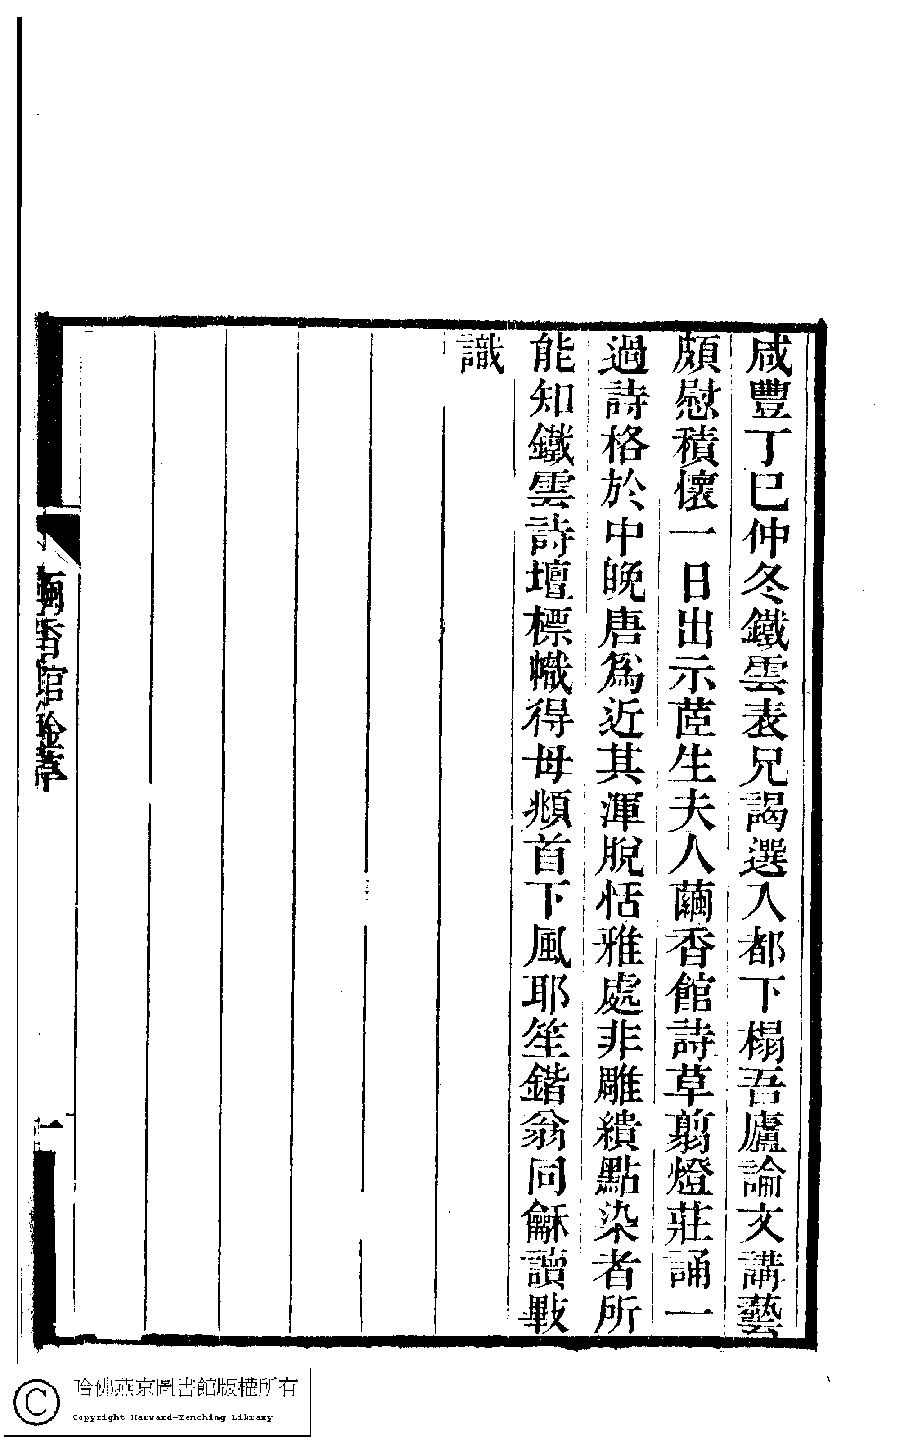 咸豐丁巳仲冬鐵雲表兄謁選入都下榻吾廬論文講藝
頗慰積懷一日出示茝生夫人繭香館詩草翦燈莊誦一
過詩格於中晚唐爲近其渾脫恬雅處非雕繢點染者所
能知鐵雲詩壇標幟得毋頫首下風耶笙鍇翁同龢讀畢
識
繭香館唫草
一
哈佛燕京圖書館版權所有
Copyright Harvard-Yenching Library